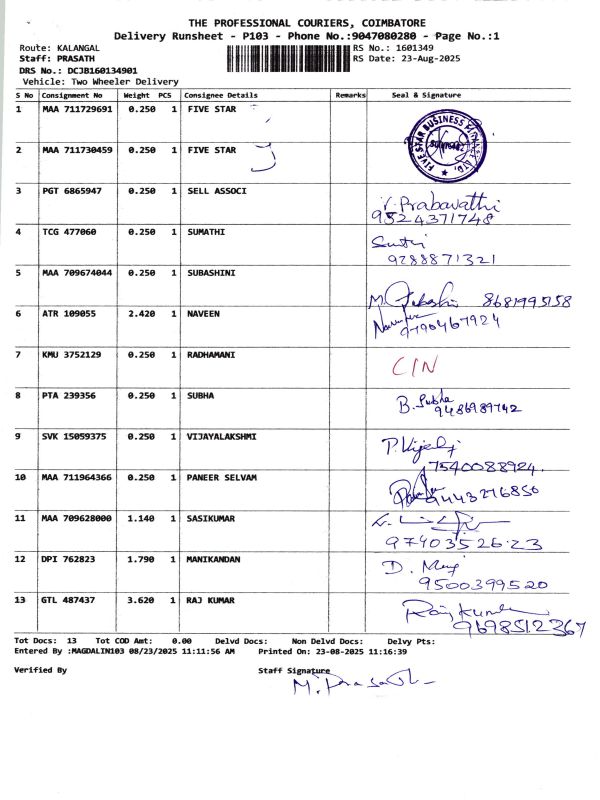 THE PROFESSIONAL COURIERS, COIMBATORE
Delivery Runsheet - P103 - Phone No.:9047080280 - Page No.:1
Route: KALANGAL RS No.: 1601349
Staff: PRASATH RS Date: 23-Aug-2025
DRS No.: DCJB160134901
Vehicle: Two Wheeler Delivery
S No Consignment No Weight PCS Consignee Details Remarks Seal & Signature
1 MAA 711729691 0.250 1 FIVE STAR
FIVE STAR BUSINESS LTD.
2 MAA 711730459 0.250 1 FIVE STAR
3 PGT 6865947 0.250 1 SELL ASSOCI V. Prabavathi
9524371748
4 TCG 477060 0.250 1 SUMATHI
9288871321
5 MAA 709674044 0.250 1 SUBASHINI 8681995158
6 ATR 109055 2.420 1 NAVEEN
9790467924
7 KMU 3752129 0.250 1 RADHAMANI C/N
8 PTA 239356 0.250 1 SUBHA B. Subha
9486989742
9 SVK 15059375 0.250 1 VIJAYALAKSHMI
7540088924
10 MAA 711964366 0.250 1 PANEER SELVAM
9443276850
11 MAA 709628000 1.140 1 SASIKUMAR
9740352623
12 DPI 762823 1.790 1 MANIKANDAN
9500399520
13 GTL 487437 3.620 1 RAJ KUMAR
9698512367
Tot Docs: 13 Tot COD Amt: 0.00 Delvd Docs: Non Delvd Docs: Delvy Pts:
Entered By :MAGDALIN103 08/23/2025 11:11:56 AM Printed On: 23-08-2025 11:16:39
Verified By Staff Signature
M. Prasath